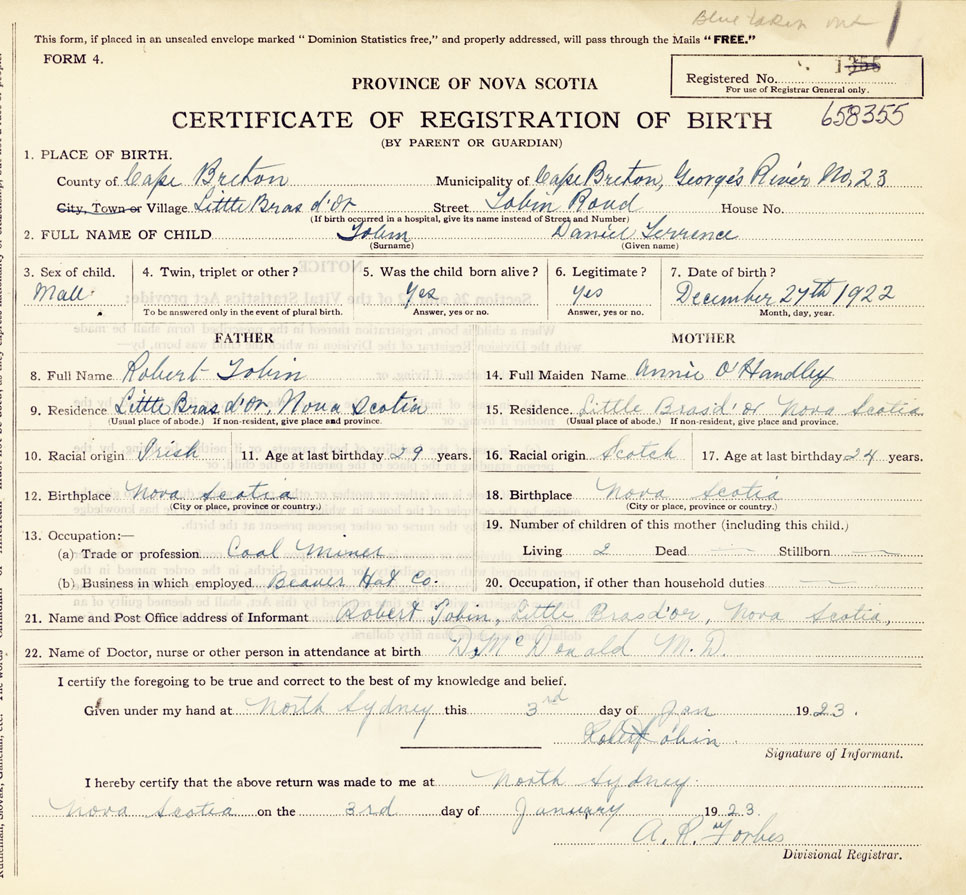 This form, if placed in an unsealed envelope marked “ Dominion Statistics free,” and properly addressed, will pass through the Mails “ FREE.”
FORM 4.
PROVINCE OF NOVA SCOTIA
Registered No. 1355
For use of Registrar General only.
658355
CERTIFICATE OF REGISTRATION OF BIRTH
(BY PARENT OR GUARDIAN)
1. PLACE OF BIRTH.
County of Cape Breton Municipality of Cape Breton, George's River No. 23
City, Town or Village Little Bras d'Or Street Tobin Road House No.
(If birth occurred in a hospital, give its name instead of Street and Number)
2. FULL NAME OF CHILD Tobin Daniel Terrence
(Surname) (Given name)
3. Sex of child. 4. Twin, triplet or other? 5. Was the child born alive? 6. Legitimate? 7. Date of birth?
Male Yes Yes December 27th 1922
To be answered only in the event of plural birth. Answer, yes or no. Answer, yes or no. Month, day, year.
FATHER MOTHER
8. Full Name Robert Tobin 14. Full Maiden Name Annie O'Handley
9. Residence Little Bras d'Or, Nova Scotia 15. Residence. Little Bras d'or Nova Scotia
(Usual place of abode.) If non-resident, give place and province. (Usual place of abode.) If non-resident, give place and province.
10. Racial origin Irish 11. Age at last birthday 29 years. 16. Racial origin Scotch 17. Age at last birthday 24 years.
12. Birthplace Nova Scotia 18. Birthplace Nova Scotia
(City or place, province or country.) (City or place, province or country.)
13. Occupation:— 19. Number of children of this mother (including this child.)
(a) Trade or profession Coal Miner Living 2 Dead — Stillborn —
(b) Business in which employed Beaver Hat Co. 20. Occupation, if other than household duties —
21. Name and Post Office address of Informant Robert Tobin, Little Bras d'or, Nova Scotia,
22. Name of Doctor, nurse or other person in attendance at birth D. McDonald M. D.
I certify the foregoing to be true and correct to the best of my knowledge and belief.
Given under my hand at North Sydney this 3rd day of Jan 1923.
Robert Tobin
Signature of Informant.
I hereby certify that the above return was made to me at North Sydney.
Nova Scotia on the 3rd day of January 1923
A. R. Forbes
Divisional Registrar.